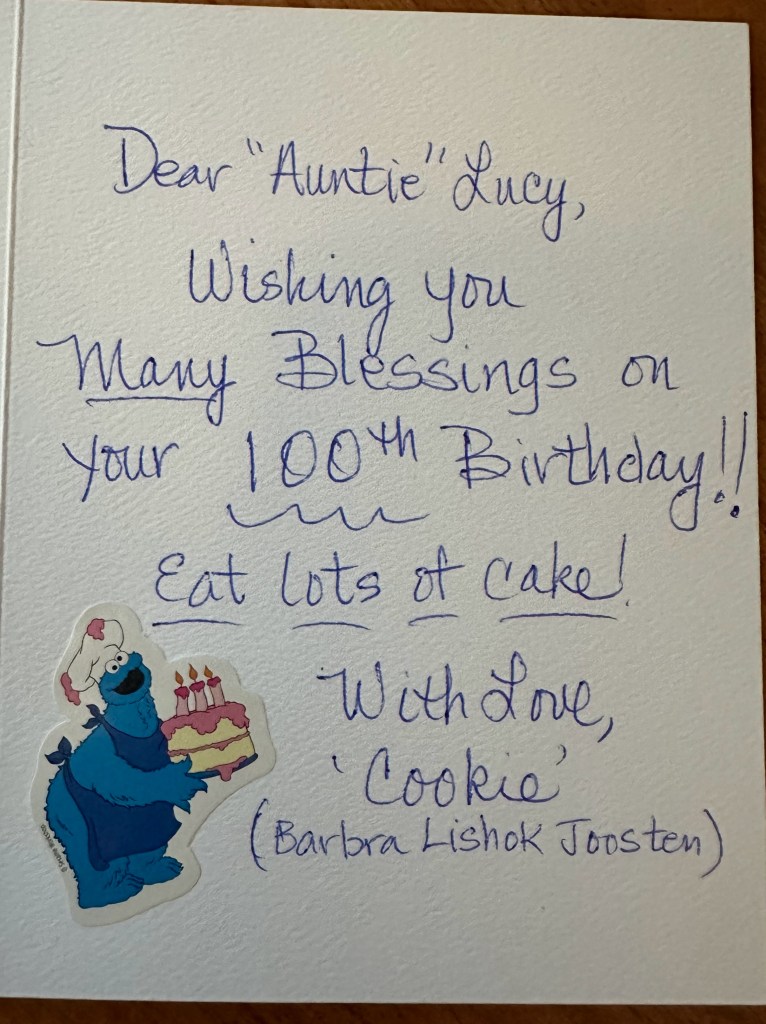 Dear "Auntie" Lucy,
Wishing you
Many Blessings on
your 100th Birthday!!
Eat lots of cake!
With Love,
'Cookie'
(Barbra Lishok Joosten)